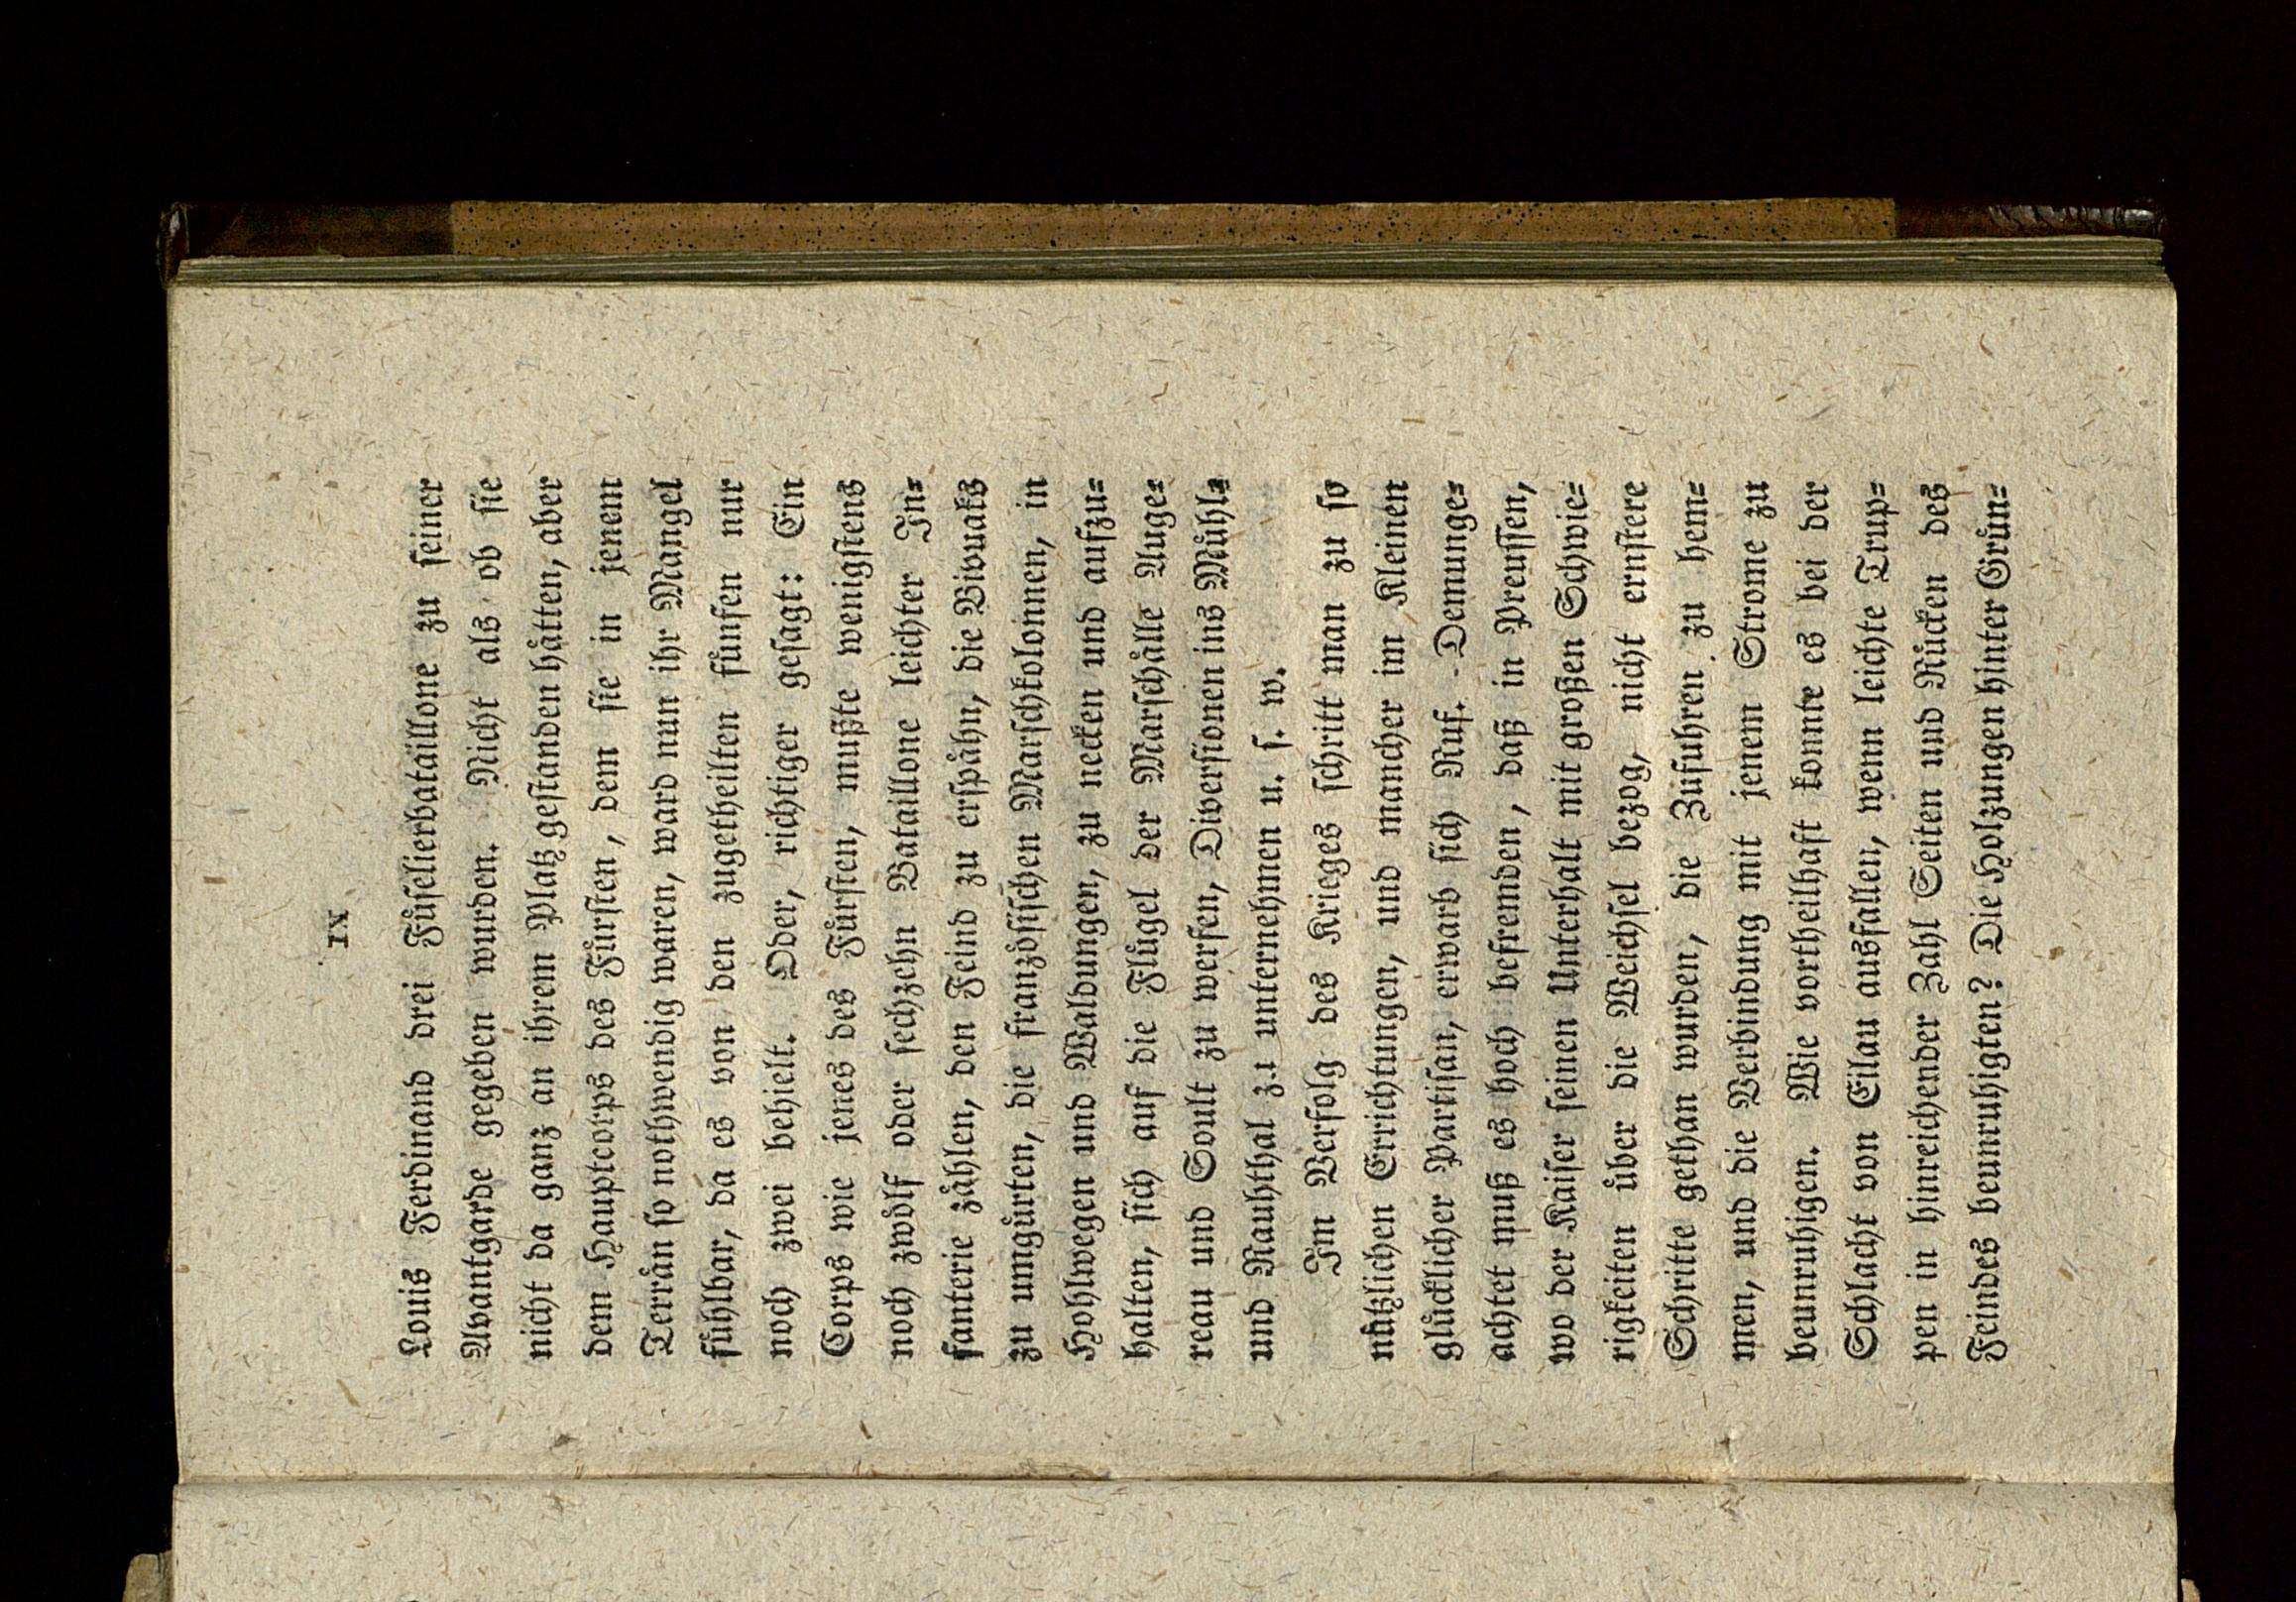 IX
Louis Ferdinand drei Fůſelierbataillone zu ſeiner
Avantgarde gegeben wurden. Nicht als ob ſie
nicht da ganz an ihrem Platz geſtanden håtten, aber
dem Hauptcorps des Fůrſten, dem ſie in jenem
Terrån ſo nothwendig waren, ward nun ihr Mangel
fůhlbar, da es von den zugetheilten fůnfen nur
noch zwei behielt. Oder, richtiger geſagt: Ein
Corps wie jenes des Fůrſten, mußte wenigſtens
noch zwoͤlf oder ſechzehn Bataillone leichter In⸗
fanterie zåhlen, den Feind zu erſpåhn, die Bivuaks
zu umgůrten, die franzoͤſiſchen Marſchkolonnen, in
Hohlwegen und Waldungen, zu necken und aufzu⸗
halten, ſich auf die Flůgel der Marſchålle Auge⸗
reau und Soult zu werfen, Diverſionen ins Můhl⸗
und Rauhthal zu unternehmen u. ſ. w.
Im Verfolg des Krieges ſchritt man zu ſo
nůtzlichen Errichtungen, und mancher im Kleinen
glůcklicher Partiſan, erwarb ſich Ruf. Demunge⸗
achtet muß es hoch befremden, daß in Preuſſen,
wo der Kaiſer ſeinen Unterhalt mit großen Schwie⸗
rigkeiten ůber die Weichſel bezog, nicht ernſtere
Schritte gethan wurden, die Zufuhren zu hem⸗
men, und die Verbindung mit jenem Strome zu
beunruhigen. Wie vortheilhaft konnte es bei der
Schlacht von Eilau ausfallen, wenn leichte Trup⸗
pen in hinreichender Zahl Seiten und Růcken des
Feindes beunruhigten? Die Holzungen hinter Grůn⸗